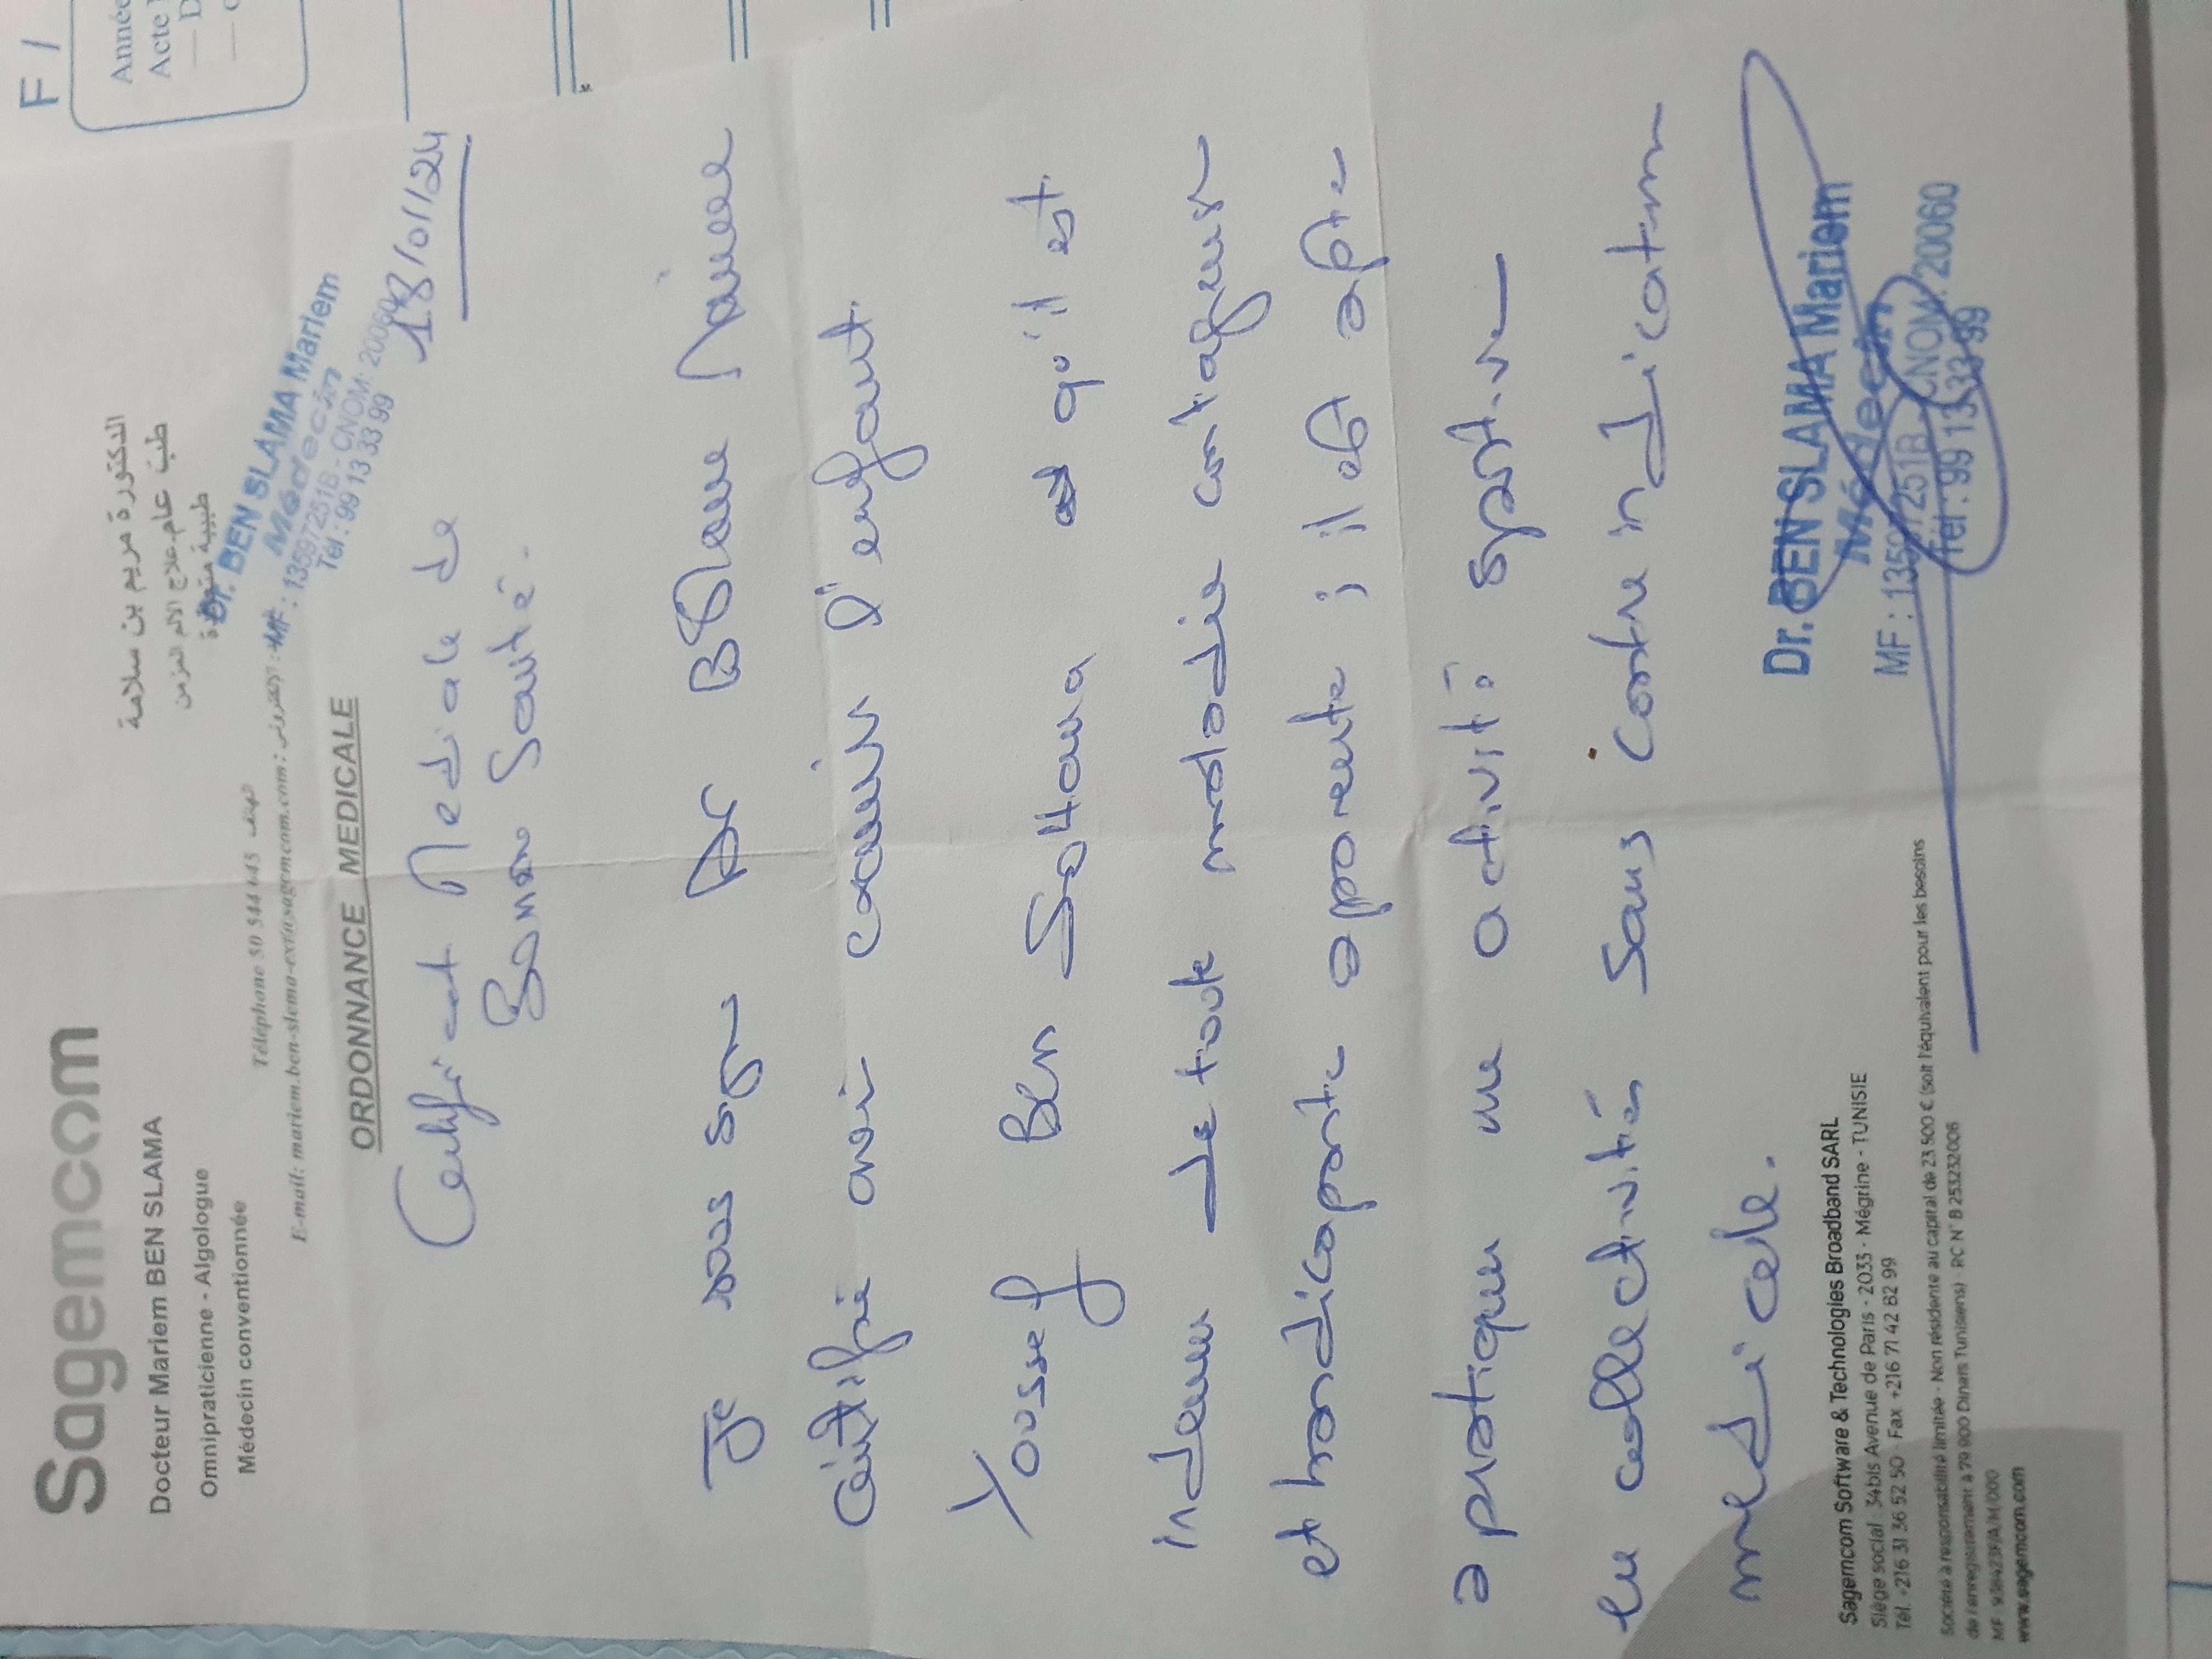 F 1
Année
Acte
Sagemcom
Docteur Mariem BEN SLAMA
Omnipraticienne - Algologue
Médecin conventionnée
الدكتورة مريم بن سلامة
طب عام علاج الالم المزمن
طبيبة
Dr. BEN SLAMA Mariem
Médecin
MF : 13597251B - CNOM: 20060
Tél : 99 13 33 99
Téléphone 50 544 645 الهاتف
E-mail: mariem.ben-slema-ext@sagemcom.com :
18/01/24
ORDONNANCE MEDICALE
Certificat Mediale de
Bonne Santé.
Je sous Dr BSlama Mariem
Certifié avoir l'enfant
Youssef Ben Soltana et qu'il est
Indemne de toute maladie contagieuse
et handicaporte aparente ; il est apte
a pratiquer une activité sportive
en collectivités sans contre indication
medicale.
Dr. BEN SLAMA Mariem
Médecin
MF : 13597251B CNOM: 20060
Tél : 99 13 33 99
Sagemcom Software & Technologies Broadband SARL
Siège social : 34bis Avenue de Paris - 2033 - Mégrine - TUNISIE
Tél. +216 31 36 52 50 - Fax +216 71 42 82 99
Société à responsabilité limitée - Non résidente au capital de 23 500 € (soit l'équivalent pour les besoins
de l'enregistrement à 79 900 Dinars Tunisiens) - RC N° B 253232006
MF : 938423F/A/M/000
www.sagemcom.com